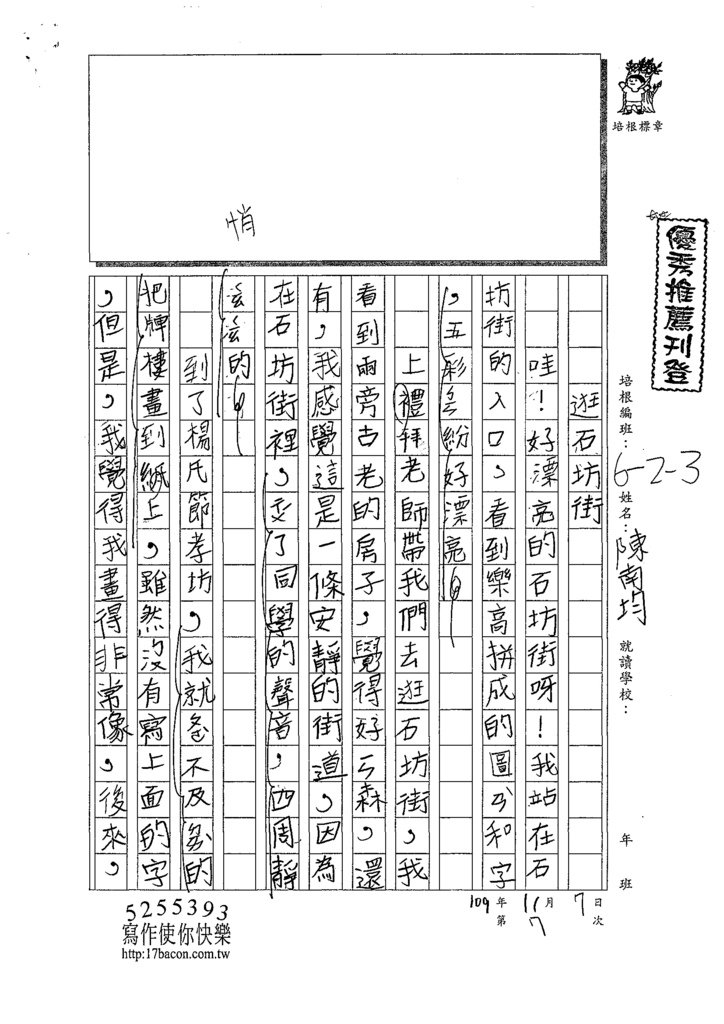 培根標章
優秀推薦刊登
培根編班：6-2-3
姓名：陳南均
就讀學校：
年
班
109年11月7日
第7次
悄
逛石坊街
哇！好漂亮的石坊街呀！我站在石
坊街的入口，看到樂高拼成的圖ㄢ和字
，五彩繽紛好漂亮。
上禮拜老師帶我們去逛石坊街。我
看到兩旁古老的房子，覺得好ㄎ森。還
有，我感覺這是一條安靜的街道，因為
在石坊街裡，
了同學的聲音，四周靜
的。
到了楊氏節孝坊，我就
不及
的
把牌樓畫到紙上，雖然沒有寫上面的字
，但是，我覺得我畫得非常像。後來，
5255393
寫作使你快樂
http:17bacon.com.tw